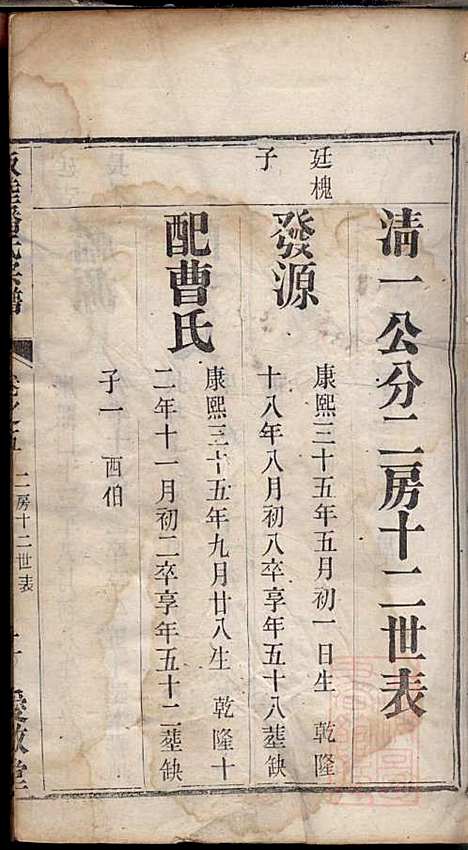 清一公分二房十二世表
廷槐
子
發源
康熙三十五年五月初一日生 乾隆
十八年八月初八卒享年五十八塟缺
配曹氏
康熙三十五年九月廿八生 乾隆十
二年十一月初二卒享年五十二塟缺
子一 西伯
氏宗譜
卷之五
二房十二世表
愛敬堂